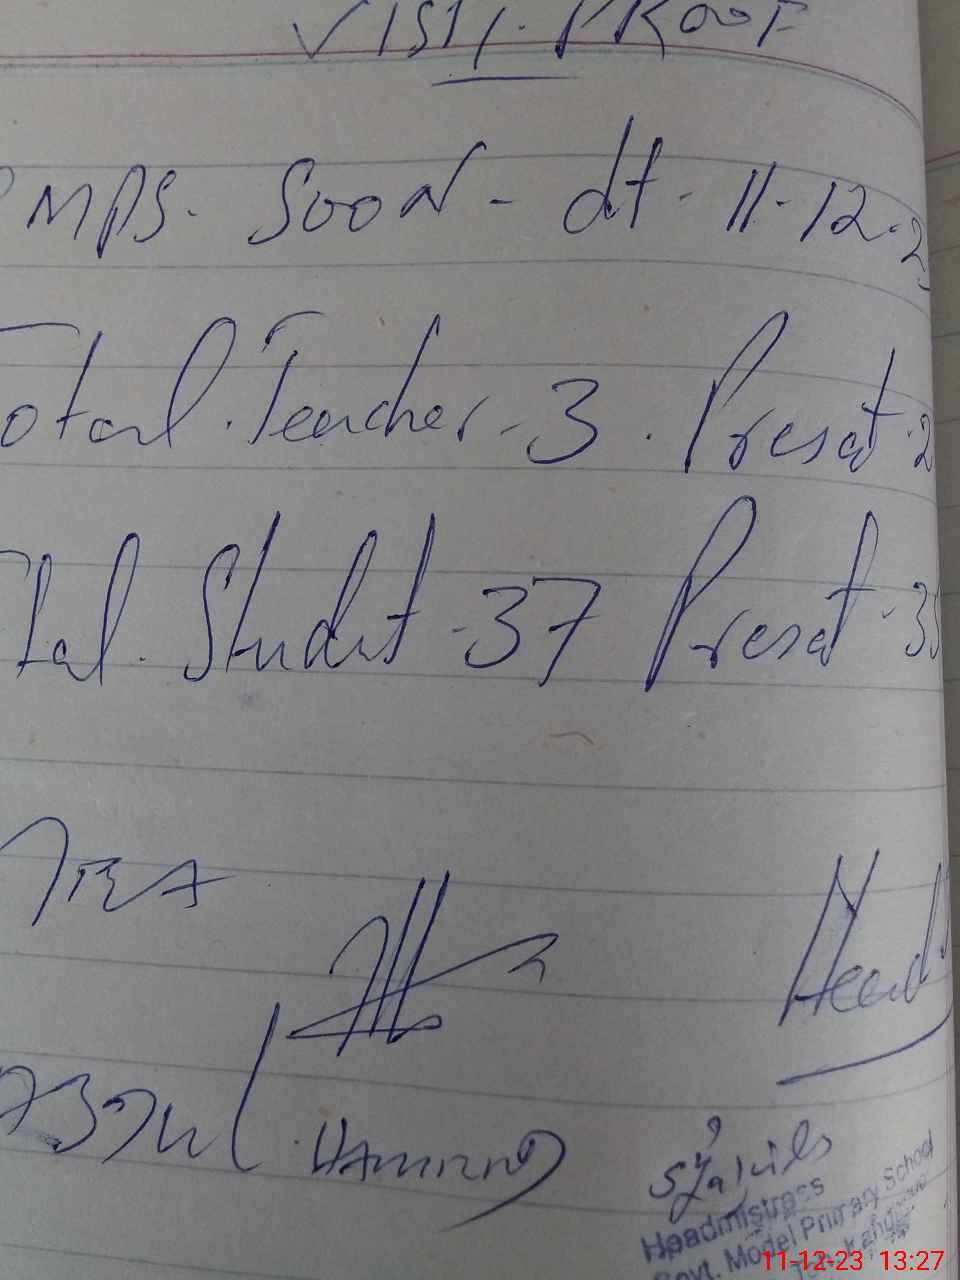 VISIT. PROOF
MPS. SOON - dt - 11-12-2
otal. Teacher - 3. Presat - 2
tal. Studet - 37 Presat - 35
ABDUL. HAMEED
Headmistress
Govt. Model Primary School
11-12-23 13:27